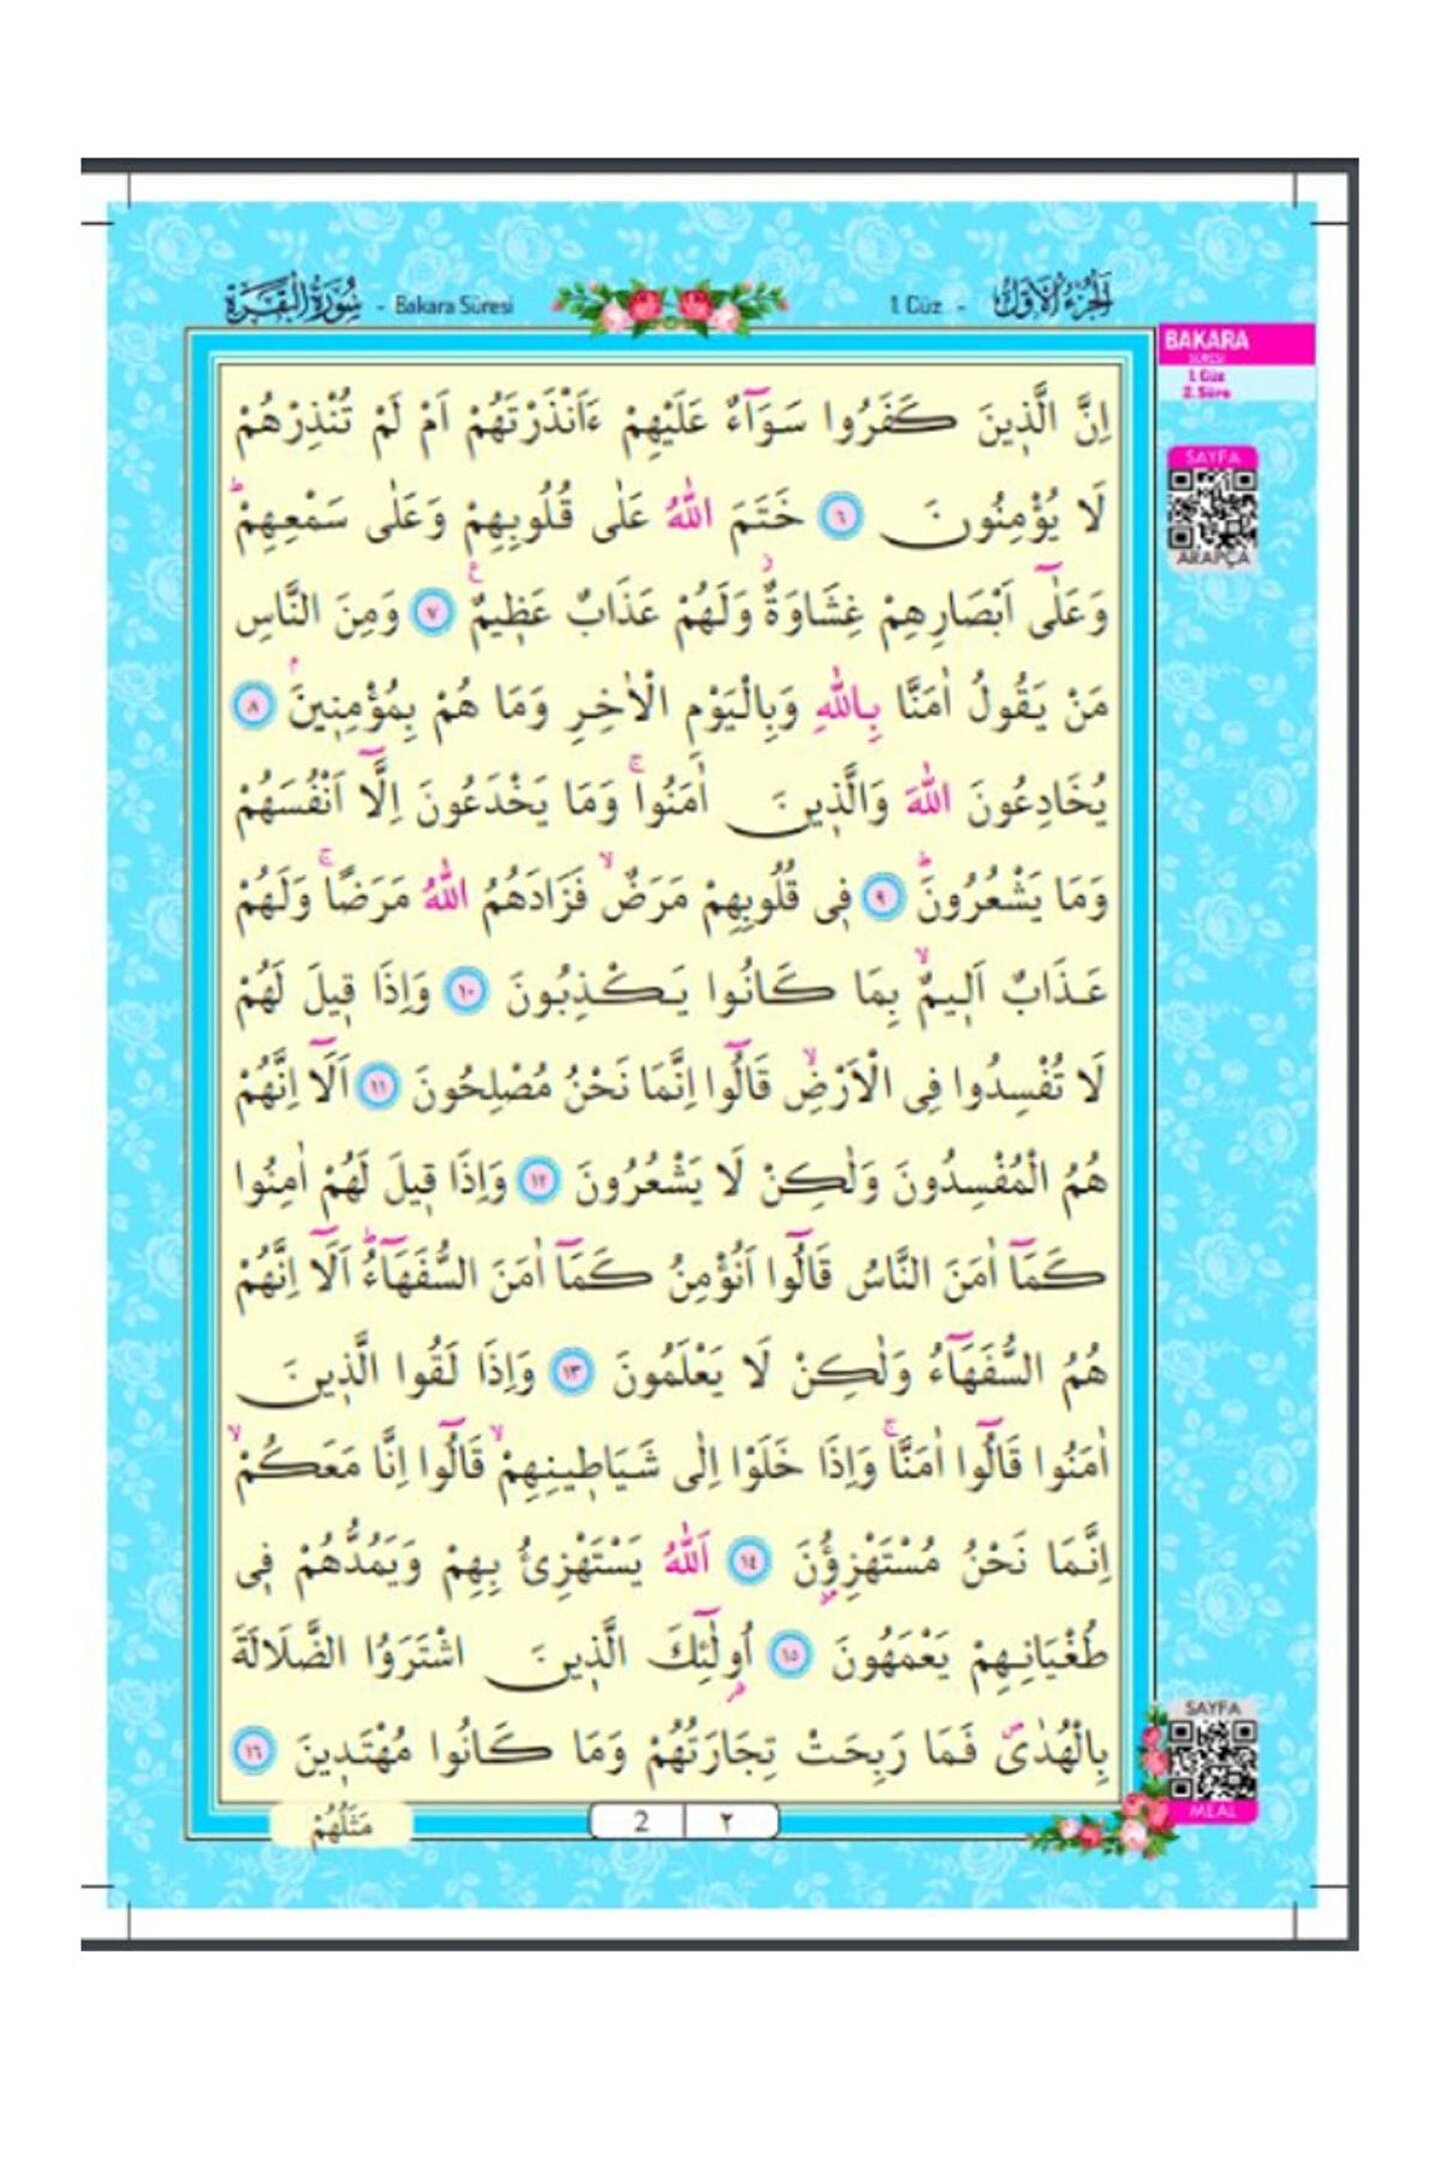 سُورَةُ الْبَقَرَةِ - Bakara Sûresi
1. Cüz - اَلْجُزْءُ الْاَوَّلُ
BAKARA
SURESİ
1. Cüz
2. Sûre
SAYFA
ARAPÇA
اِنَّ الَّذ۪ينَ كَفَرُوا سَوَٓاءٌ عَلَيْهِمْ ءَاَنْذَرْتَهُمْ اَمْ لَمْ تُنْذِرْهُمْ
لَا يُؤْمِنُونَ ﴿٦﴾ خَتَمَ اللّٰهُ عَلٰى قُلُوبِهِمْ وَعَلٰى سَمْعِهِمْۜ
وَعَلٰٓى اَبْصَارِهِمْ غِشَاوَةٌۘ وَلَهُمْ عَذَابٌ عَظ۪يمٌ۟ ﴿٧﴾ وَمِنَ النَّاسِ
مَنْ يَقُولُ اٰمَنَّا بِاللّٰهِ وَبِالْيَوْمِ الْاٰخِرِ وَمَا هُمْ بِمُؤْمِن۪ينَۢ ﴿٨﴾
يُخَادِعُونَ اللّٰهَ وَالَّذ۪ينَ اٰمَنُواۚ وَمَا يَخْدَعُونَ اِلَّٓا اَنْفُسَهُمْ
وَمَا يَشْعُرُونَۜ ﴿٩﴾ ف۪ي قُلُوبِهِمْ مَرَضٌۙ فَزَادَهُمُ اللّٰهُ مَرَضًاۚ وَلَهُمْ
عَذَابٌ اَل۪يمٌۙ بِمَا كَانُوا يَكْذِبُونَ ﴿١٠﴾ وَاِذَا ق۪يلَ لَهُمْ
لَا تُفْسِدُوا فِي الْاَرْضِۙ قَالُٓوا اِنَّمَا نَحْنُ مُصْلِحُونَ ﴿١١﴾ اَلَٓا اِنَّهُمْ
هُمُ الْمُفْسِدُونَ وَلٰكِنْ لَا يَشْعُرُونَ ﴿١٢﴾ وَاِذَا ق۪يلَ لَهُمْ اٰمِنُوا
كَمَٓا اٰمَنَ النَّاسُ قَالُٓوا اَنُؤْمِنُ كَمَٓا اٰمَنَ السُّفَهَٓاءُۜ اَلَٓا اِنَّهُمْ
هُمُ السُّفَهَٓاءُ وَلٰكِنْ لَا يَعْلَمُونَ ﴿١٣﴾ وَاِذَا لَقُوا الَّذ۪ينَ
اٰمَنُوا قَالُٓوا اٰمَنَّاۚ وَاِذَا خَلَوْا اِلٰى شَيَاط۪ينِهِمْۙ قَالُٓوا اِنَّا مَعَكُمْۙ
اِنَّمَا نَحْنُ مُسْتَهْزِؤُ۫نَ ﴿١٤﴾ اَللّٰهُ يَسْتَهْزِئُ بِهِمْ وَيَمُدُّهُمْ ف۪ي
طُغْيَانِهِمْ يَعْمَهُونَ ﴿١٥﴾ اُو۬لٰٓئِكَ الَّذ۪ينَ اشْتَرَوُا الضَّلَالَةَ
بِالْهُدٰىۖ فَمَا رَبِحَتْ تِجَارَتُهُمْ وَمَا كَانُوا مُهْتَد۪ينَ ﴿١٦﴾
مَثَلُهُمْ
2 ٢
SAYFA
MEAL